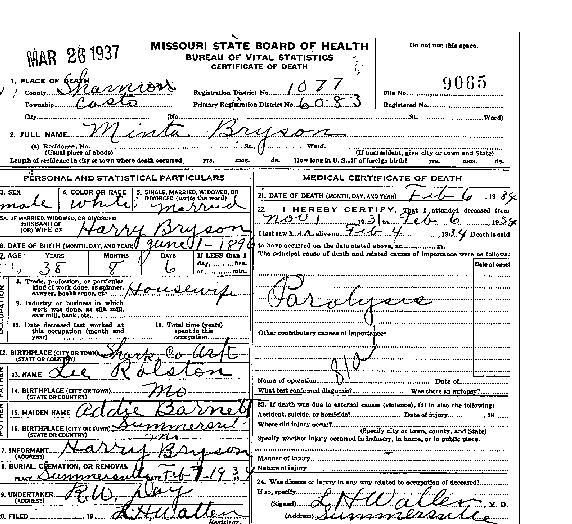 MAR 26 1937
MISSOURI STATE BOARD OF HEALTH
BUREAU OF VITAL STATISTICS
CERTIFICATE OF DEATH
Do not use this space.
1. PLACE OF DEATH
County Shannon
Registration District No. 1077
File No. 9065
Township Casto
Primary Registration District No. 6083
Registered No.
City (No. St. Ward)
2. FULL NAME Minta Bryson
(a) Residence, No. St. Ward.
(Usual place of abode) (If nonresident, give city or town and State)
Length of residence in city or town where death occurred yrs. mos. ds. How long in U. S., if of foreign birth? yrs. mos. ds.
PERSONAL AND STATISTICAL PARTICULARS
3. SEX 4. COLOR OR RACE 5. SINGLE, MARRIED, WIDOWED, OR DIVORCED (write the word)
male White married
5A. IF MARRIED, WIDOWED, OR DIVORCED
HUSBAND OF (OR) WIFE OF Harry Bryson
6. DATE OF BIRTH (MONTH, DAY, AND YEAR) June 1-189
7. AGE YEARS MONTHS DAYS If LESS than 1 day, hrs. or min.
38 8 6
OCCUPATION
8. Trade, profession, or particular kind of work done, as spinner, sawyer, bookkeeper, etc. Housewife
9. Industry or business in which work was done, as silk mill, saw mill, bank, etc.
10. Date deceased last worked at this occupation (month and year)
11. Total time (years) spent in this occupation
12. BIRTHPLACE (CITY OR TOWN) Sharp Co Ark
(STATE OR COUNTRY)
13. NAME Lee Ralston
14. BIRTHPLACE (CITY OR TOWN) Mo
(STATE OR COUNTRY)
15. MAIDEN NAME Addie Barnett
16. BIRTHPLACE (CITY OR TOWN) Summersvil
(STATE OR COUNTRY) Mo
17. INFORMANT Harry Bryson
(ADDRESS)
18. BURIAL, CREMATION, OR REMOVAL
PLACE Summersville Feb 7 1934
19. UNDERTAKER R.W. Day
(ADDRESS)
20. FILED 19 L H Walter
MEDICAL CERTIFICATE OF DEATH
21. DATE OF DEATH (MONTH, DAY, AND YEAR) Feb 6 1934
22. I HEREBY CERTIFY, That I attended deceased from
Nov 1 193 to Feb 6 1934
I last saw h alive on Feb 4 1934 Death is said
to have occurred on the date stated above, at m.
The principal cause of death and related causes of importance were as follows:
Date of onset
Paralysis
Other contributory causes of importance:
Name of operation Date of
What test confirmed diagnosis? Was there an autopsy?
23. If death was due to external causes (violence), fill in also the following:
Accident, suicide, or homicide? Date of injury , 19
Where did injury occur?
(Specify city or town, county, and State)
Specify whether injury occurred in industry, in home, or in public place.
Manner of injury
Nature of injury
24. Was disease or injury in any way related to occupation of deceased?
If so, specify
(Signed) L H Walter M. D.
(Address) Summersville